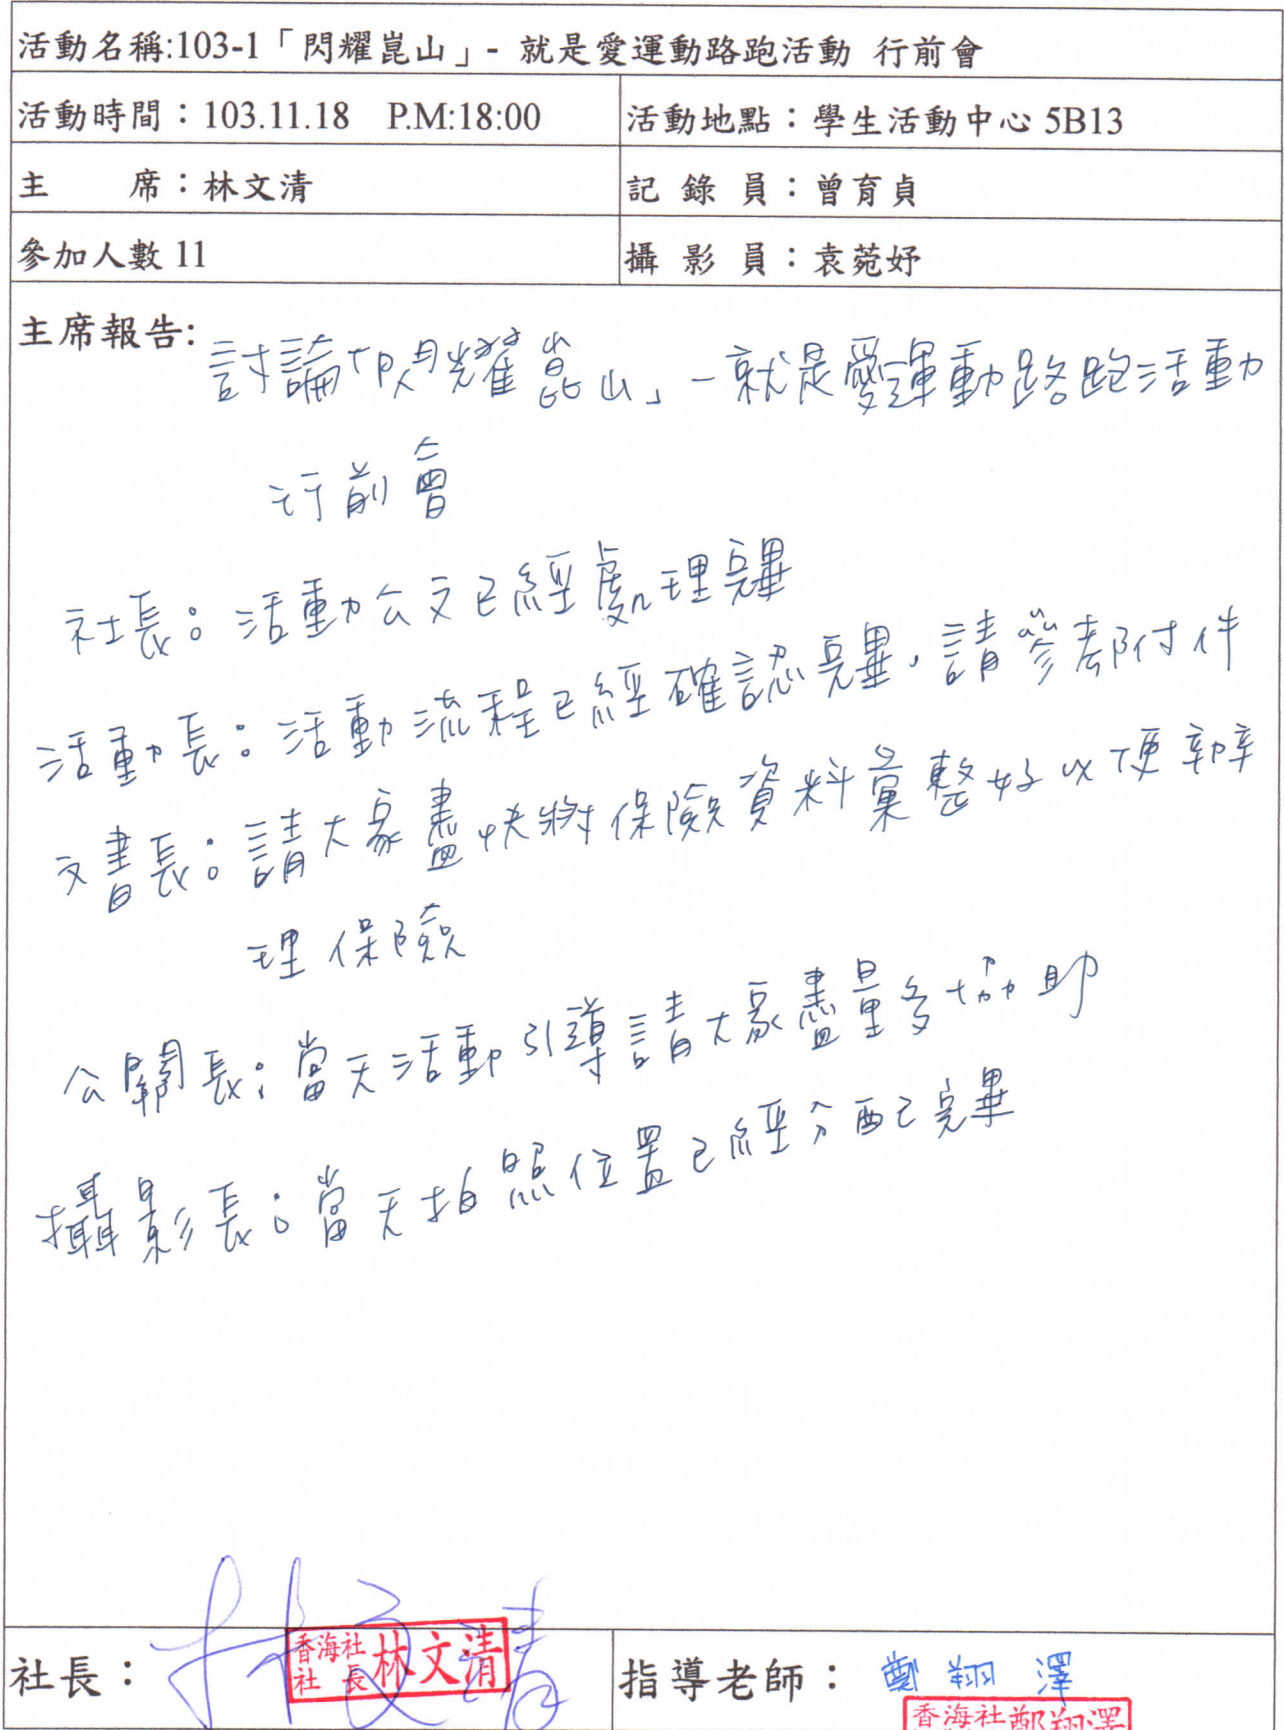 活動名稱:103-1「閃耀崑山」- 就是愛運動路跑活動 行前會
活動時間：103.11.18 P.M:18:00
活動地點：學生活動中心 5B13
主 席：林文清
記 錄 員：曾育貞
參加人數 11
攝 影 員：袁菀妤
主席報告:
討論「閃耀崑山」-就是愛運動路跑活動
行前會
社長：活動公文已經處理完畢
活動長：活動流程已經確認完畢，請參考附件
文書長：請大家盡快將保險資料彙整好以便辦
理保險
公關長：當天活動引導請大家盡量多協助
攝影長：當天拍照位置已經分配已完畢
社長：
林文清
香海社
社 長 林文清
指導老師：
鄭翔澤
香海社 鄭翔澤